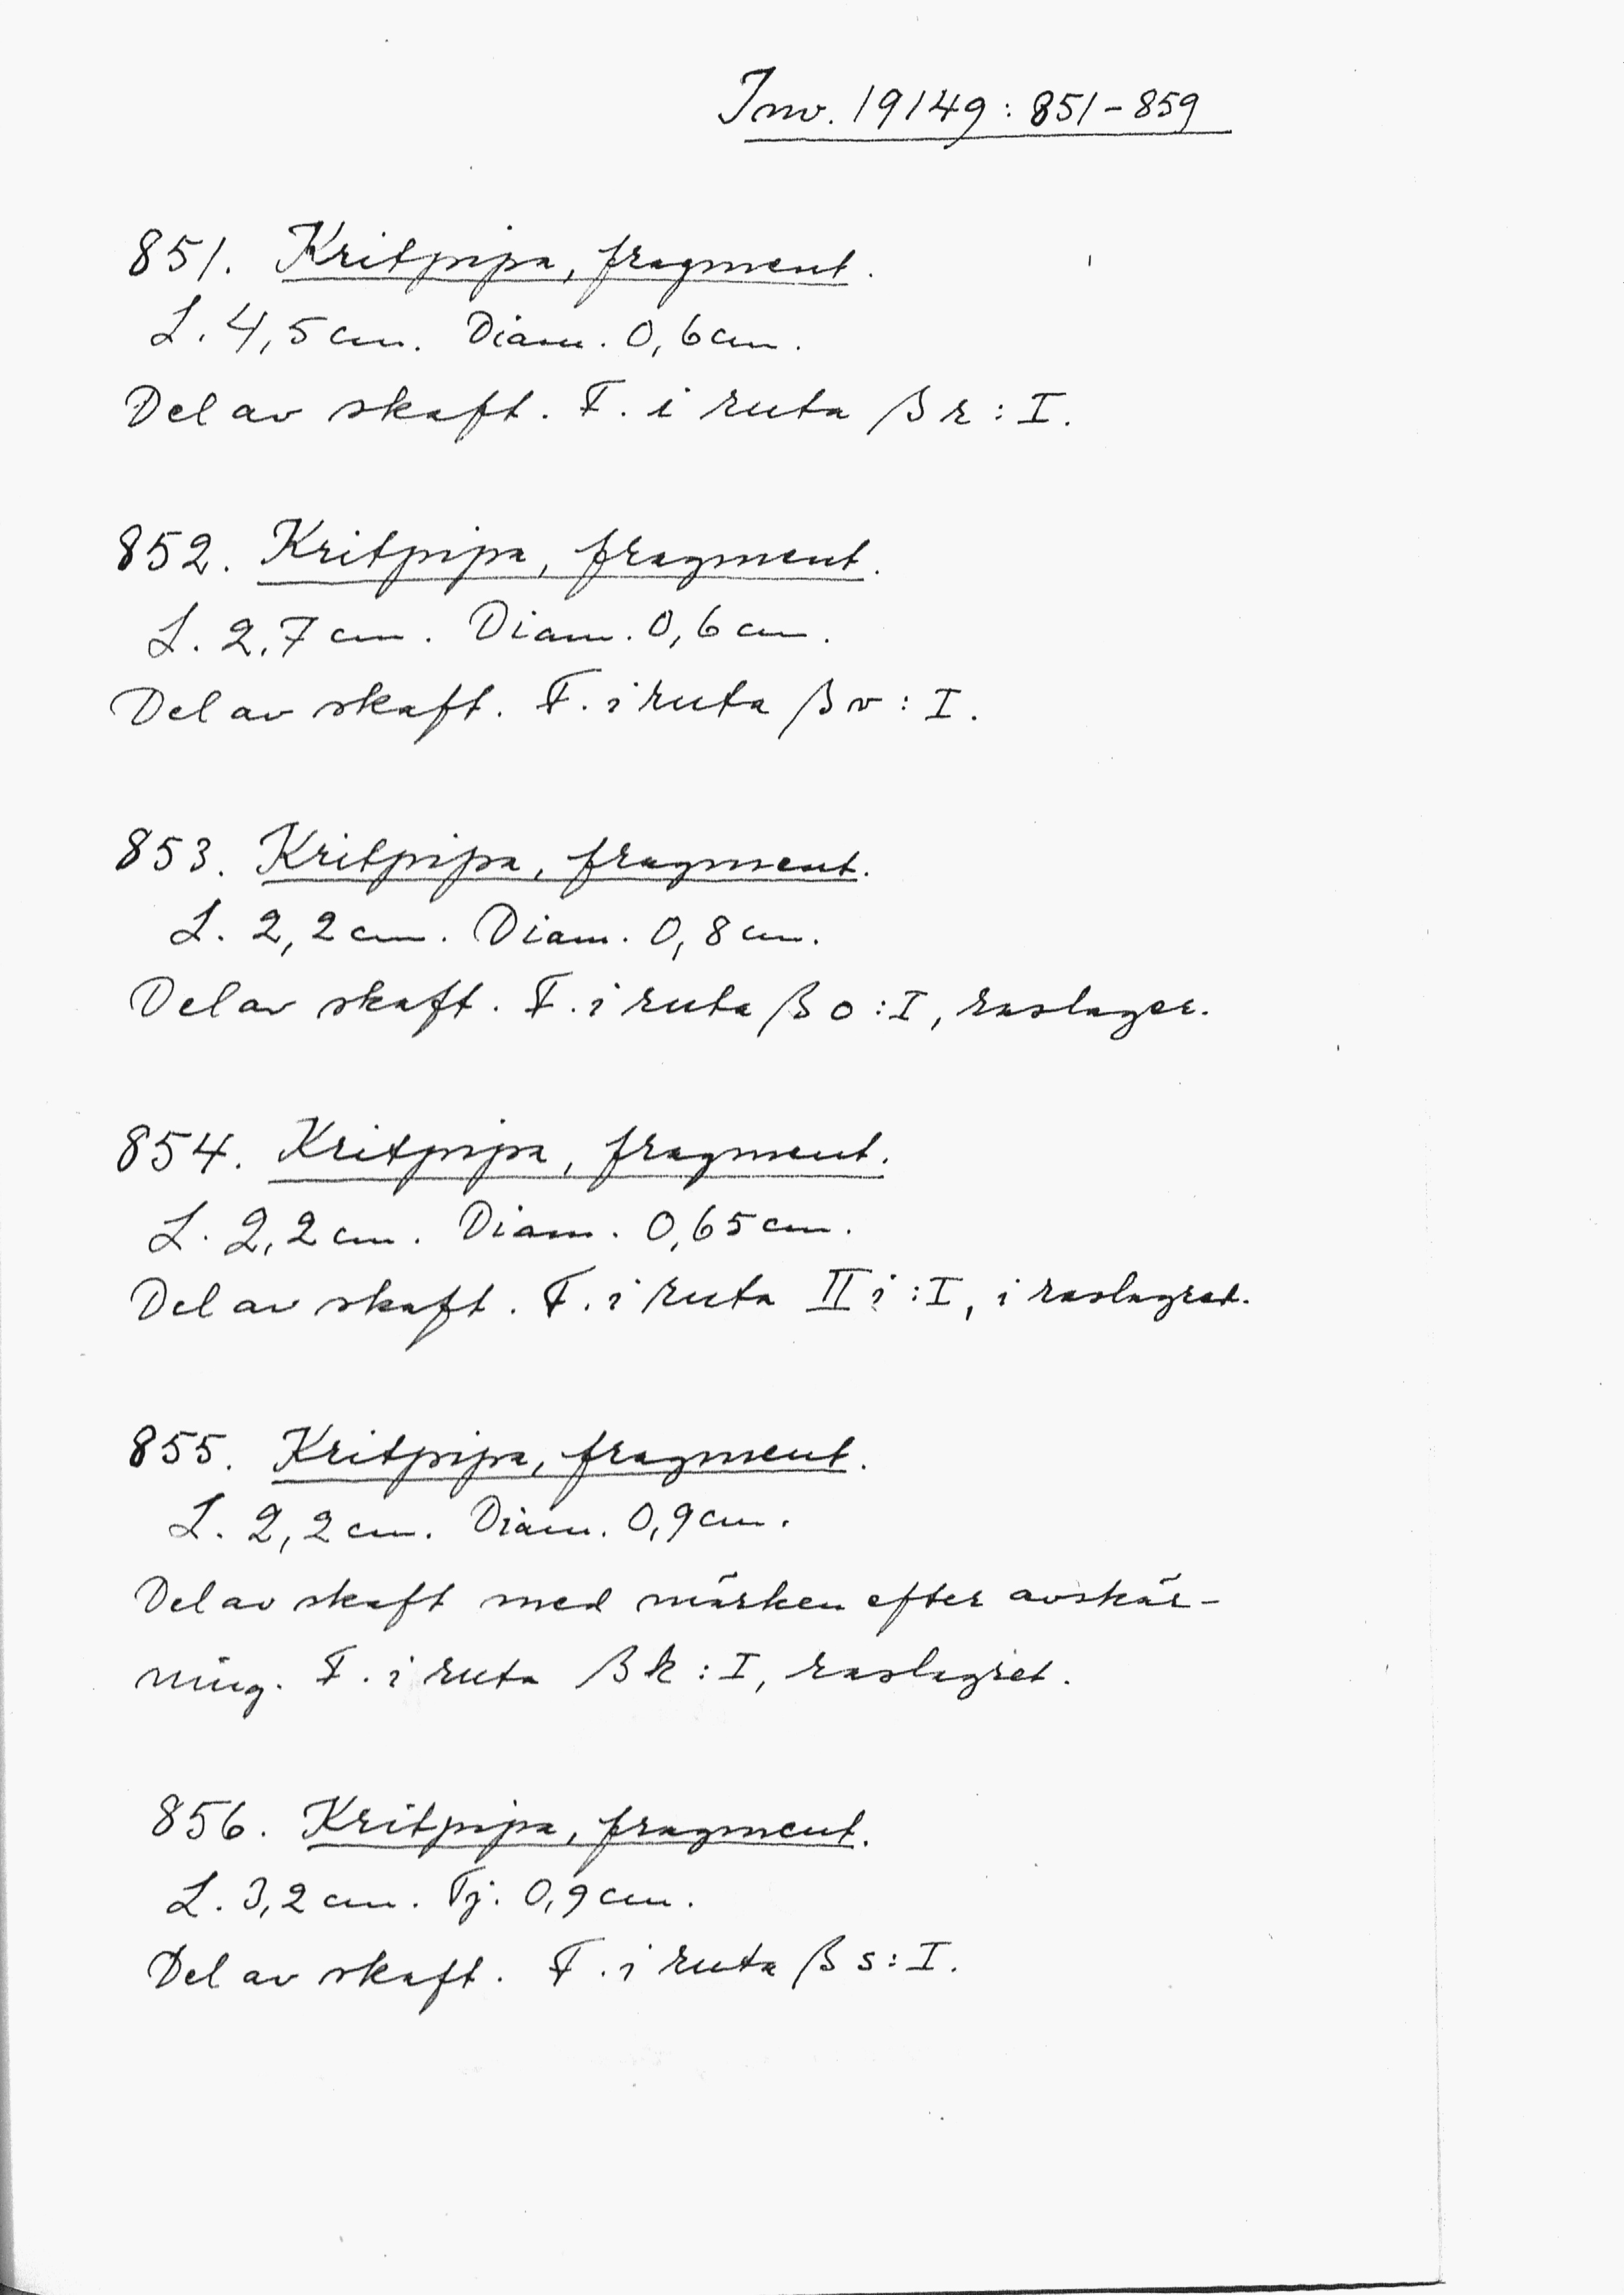 Inv. 19149: 851-859
851. Kritpipa, fragment.
L. 4,5 cm. Diam. 0,6 cm.
Del av skaft. F. i ruta β r: I.
852. Kritpipa, fragment.
L. 2,7 cm. Diam. 0,6 cm.
Del av skaft. F. i ruta β v: I.
853. Kritpipa, fragment.
L. 2,2 cm. Diam. 0,8 cm.
Del av skaft. F. i ruta β o: I, raslager.
854. Kritpipa, fragment.
L. 2,2 cm. Diam. 0,65 cm.
Del av skaft. F. i ruta II i: I, i raslagret.
855. Kritpipa, fragment.
L. 2,2 cm. Diam. 0,9 cm.
Del av skaft med märken efter avskär-
ning. F. i ruta β k: I, raslagret.
856. Kritpipa, fragment.
L. 3,2 cm. Tj. 0,9 cm.
Del av skaft. F. i ruta β s: I.